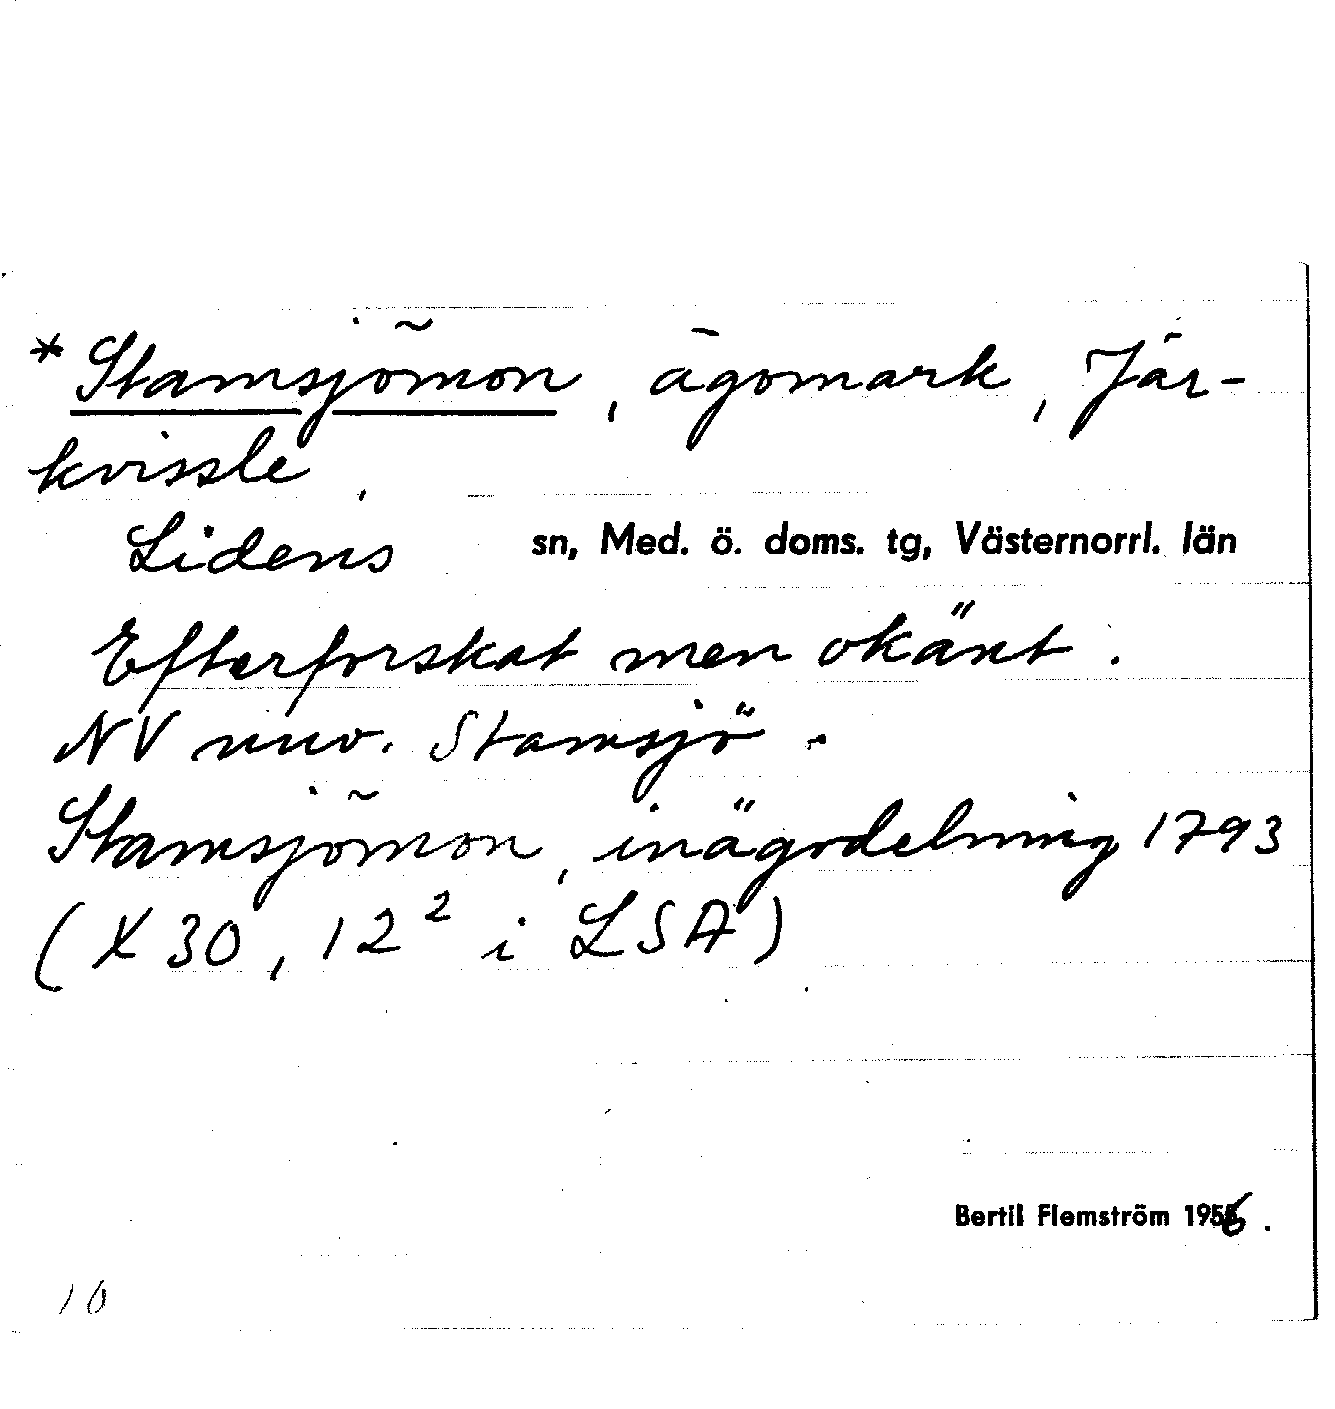 * Stamsjömon, ägomark, Jär-
kvissle,
Lidens sn, Med. ö. doms. tg, Västernorrl. län
Efterforskat men okänt.
NV nuv. Stamsjö.
Stamsjömon, inägodelning 1793
(X 30, 12² i LSA)
Bertil Flemström 1956.
10